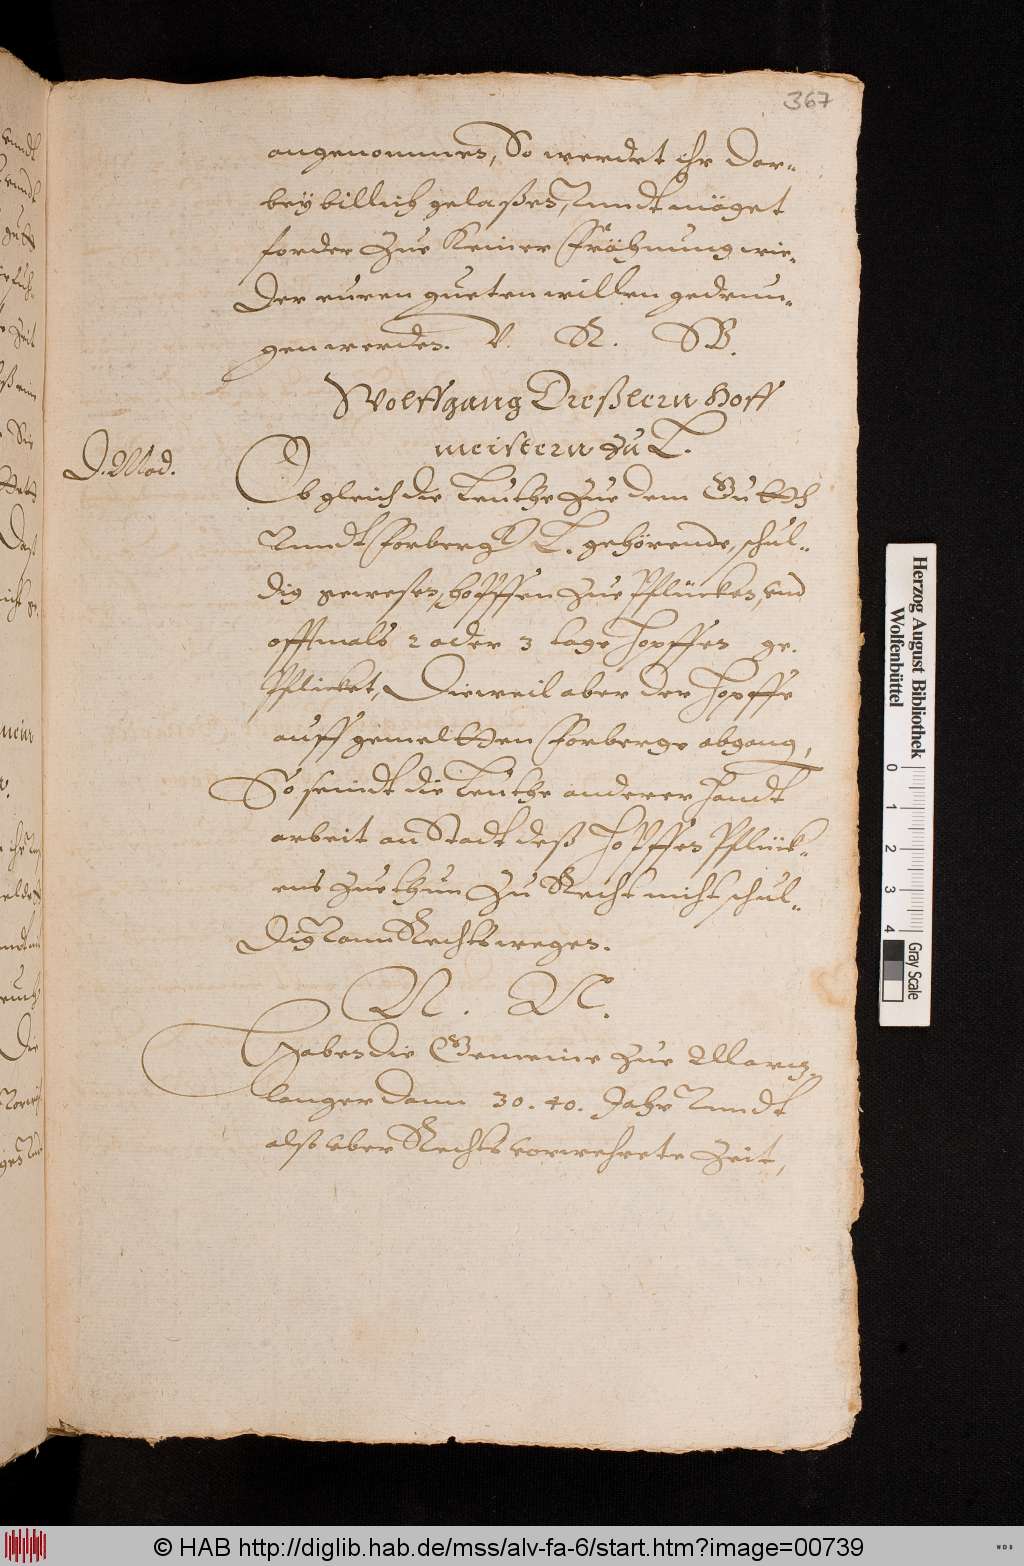 367
angenommen, So werdet ihr dar-
bey billich gelaßen, Vnndt möget
forder zue keiner Fröhnung wie-
der euren gueten willen gedrun-
gen werden. V. R. W.
Wolffgang Dreßlern Hoff
meistern zu L.
D. Mod.
Ob gleich die Leuthe zue dem Gutth
Vnndt Forberg L. gehörende, schul-
dig gewesen, hopffen zue Pflücken, vnd
offtmals 2 oder 3 tage Hopffen ge-
Pflicket, Dieweil aber der Hopffe
auff gemeltten Forberge abgang,
So seindt die Leuthe anderer Handt
arbeit an Stadt deß Hopffen Pflück-
ens Zue thun Zu Recht nicht schul-
dig Vonn Rechts wegen.
N. N.
Haben die Gemeine zue
langer dann 30. 40. Jahr Vnndt
also vber Rechts vorwehrete Zeit,
Herzog August Bibliothek
Wolfenbüttel
0 1 2 3 4
Gray Scale
© HAB http://diglib.hab.de/mss/alv-fa-6/start.htm?image=00739
WDB